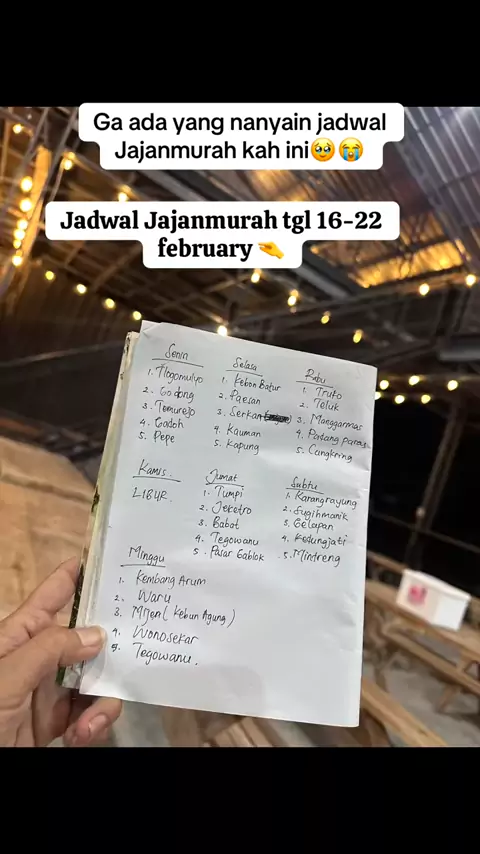 Ga ada yang nanyain jadwal
Jajanmurah kah ini🥹😭
Jadwal Jajanmurah tgl 16-22
february🤏
Senin
1. Tlogomulyo
2. Godong
3. Temurejo
4. Gadoh
5. Pepe
Selasa
1. Kebon Batur
2. Paesan
3. Serkan
4. Kauman
5. Kapung
Rabu
1. Truko
2. Teluk
3. Manggarmas
4. Patang
5. Cangkring
Kamis
LIBUR.
Jumat
1. Tumpi
2. Jeketro
3. Babot
4. Tegowanu
5. Pasar Gablok
Sabtu
1. Karangrayung
2. Sugihmanik
3. Gelapan
4. Kedungjati
5. Mintreng
Minggu
1. Kembang Arum
2. Waru
3. Mijen (Kebun Agung)
4. Wonosekar
5. Tegowanu.